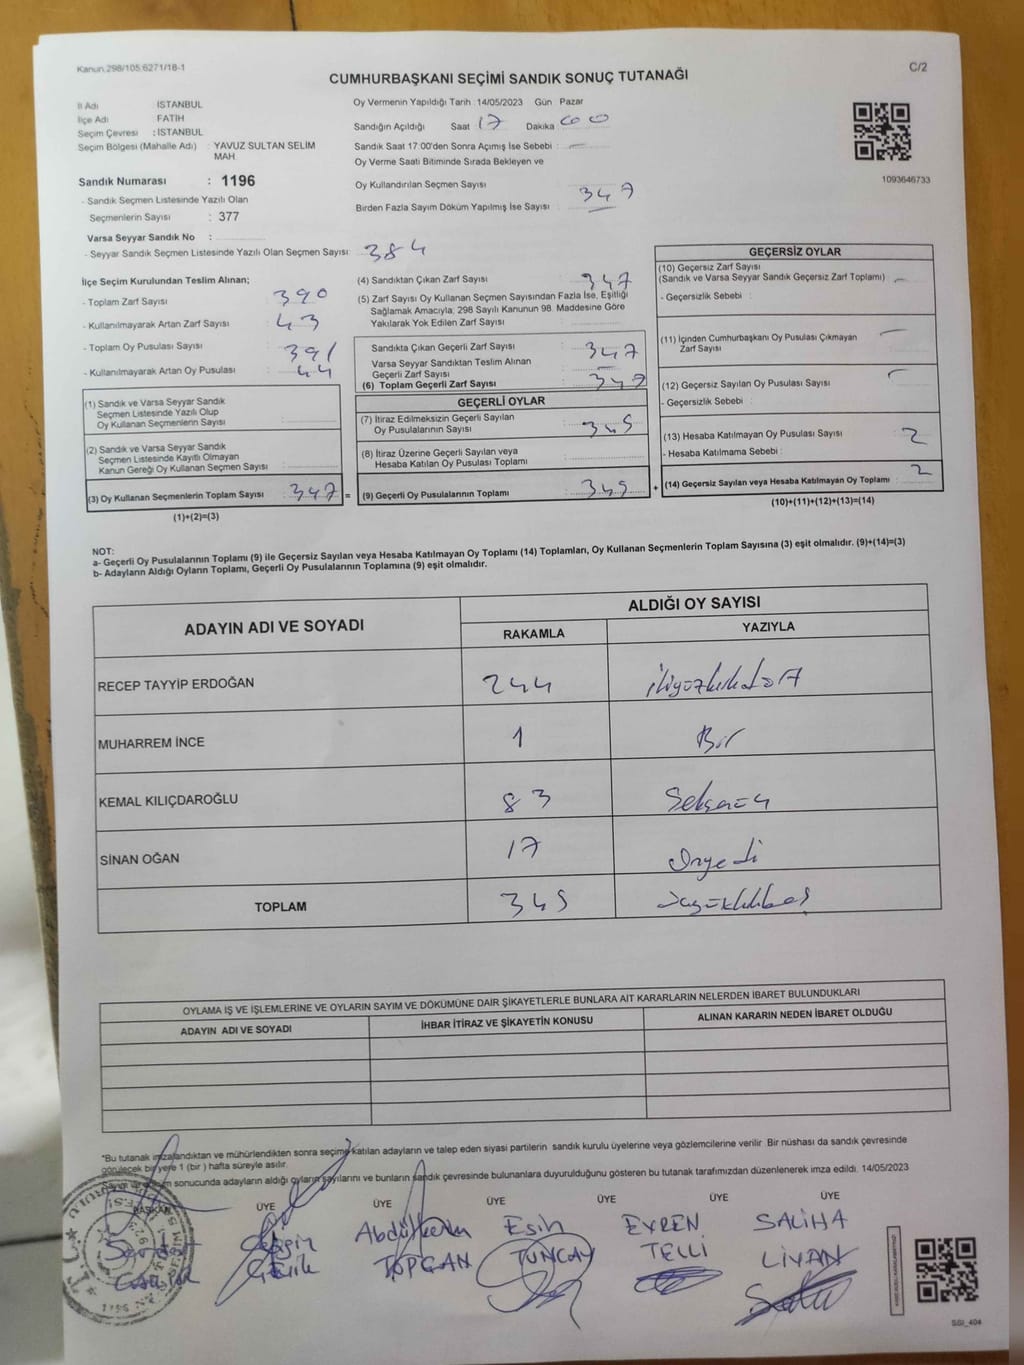 Kanun.298/105.6271/16-1
C/2
CUMHURBAŞKANI SEÇİMİ SANDIK SONUÇ TUTANAĞI
İl Adı İSTANBUL
İlçe Adı FATİH
Seçim Çevresi : İSTANBUL
Seçim Bölgesi (Mahalle Adı) : YAVUZ SULTAN SELİM MAH
Sandık Numarası : 1196
- Sandık Seçmen Listesinde Yazılı Olan
Seçmenlerin Sayısı : 377
Varsa Seyyar Sandık No :
- Seyyar Sandık Seçmen Listesinde Yazılı Olan Seçmen Sayısı: 384
Oy Vermenin Yapıldığı Tarih : 14/05/2023 Gün Pazar
Sandığın Açıldığı Saat 17 Dakika 00
Sandık Saat 17:00'den Sonra Açımış İse Sebebi :
Oy Verme Saati Bitiminde Sırada Bekleyen ve
Oy Kullandırılan Seçmen Sayısı 347
Birden Fazla Sayım Döküm Yapılmış İse Sayısı :
1093646733
İlçe Seçim Kurulundan Teslim Alınan;
- Toplam Zarf Sayısı 390
- Kullanılmayarak Artan Zarf Sayısı : 43
- Toplam Oy Pusulası Sayısı 391
- Kullanılmayarak Artan Oy Pusulası : 44
(1) Sandık ve Varsa Seyyar Sandık
Seçmen Listesinde Yazılı Olup
Oy Kullanan Seçmenlerin Sayısı :
(2) Sandık ve Varsa Seyyar Sandık
Seçmen Listesinde Kayıtlı Olmayan
Kanun Gereği Oy Kullanan Seçmen Sayısı :
(3) Oy Kullanan Seçmenlerin Toplam Sayısı : 347 =
(1)+(2)=(3)
(4) Sandıktan Çıkan Zarf Sayısı : 347
(5) Zarf Sayısı Oy Kullanan Seçmen Sayısından Fazla İse, Eşitliği
Sağlamak Amacıyla, 298 Sayılı Kanunun 98. Maddesine Göre
Yakılarak Yok Edilen Zarf Sayısı :
Sandıkta Çıkan Geçerli Zarf Sayısı : 347
Varsa Seyyar Sandıktan Teslim Alınan
Geçerli Zarf Sayısı :
(6) Toplam Geçerli Zarf Sayısı : 347
GEÇERLİ OYLAR
(7) İtiraz Edilmeksizin Geçerli Sayılan
Oy Pusulalarının Sayısı : 345
(8) İtiraz Üzerine Geçerli Sayılan veya
Hesaba Katılan Oy Pusulası Toplamı :
(9) Geçerli Oy Pusulalarının Toplamı : 345 +
GEÇERSİZ OYLAR
(10) Geçersiz Zarf Sayısı
(Sandık ve Varsa Seyyar Sandık Geçersiz Zarf Toplamı) :
- Geçersizlik Sebebi :
(11) İçinden Cumhurbaşkanı Oy Pusulası Çıkmayan
Zarf Sayısı :
(12) Geçersiz Sayılan Oy Pusulası Sayısı :
- Geçersizlik Sebebi :
(13) Hesaba Katılmayan Oy Pusulası Sayısı : 2
- Hesaba Katılmama Sebebi :
(14) Geçersiz Sayılan veya Hesaba Katılmayan Oy Toplamı : 2
(10)+(11)+(12)+(13)=(14)
NOT:
a- Geçerli Oy Pusulalarının Toplamı (9) ile Geçersiz Sayılan veya Hesaba Katılmayan Oy Toplamı (14) Toplamları, Oy Kullanan Seçmenlerin Toplam Sayısına (3) eşit olmalıdır. (9)+(14)=(3)
b- Adayların Aldığı Oyların Toplamı, Geçerli Oy Pusulalarının Toplamına (9) eşit olmalıdır.
ADAYIN ADI VE SOYADI
ALDIĞI OY SAYISI
RAKAMLA YAZIYLA
RECEP TAYYİP ERDOĞAN 244 ikiyüzkırkdört
MUHARREM İNCE 1 Bir
KEMAL KILIÇDAROĞLU 83 Seksenüç
SİNAN OĞAN 17 Onyedi
TOPLAM 345 üçyüzkırkbeş
OYLAMA İŞ VE İŞLEMLERİNE VE OYLARIN SAYIM VE DÖKÜMÜNE DAİR ŞİKAYETLERLE BUNLARA AİT KARARLARIN NELERDEN İBARET BULUNDUKLARI
ADAYIN ADI VE SOYADI İHBAR İTİRAZ VE ŞİKAYETİN KONUSU ALINAN KARARIN NEDEN İBARET OLDUĞU
*Bu tutanak imzalandıktan ve mühürlendikten sonra seçime katılan adayların ve talep eden siyasi partilerin sandık kurulu üyelerine veya gözlemcilerine verilir. Bir nüshası da sandık çevresinde
görülecek bir yere 1 (bir ) hafta süreyle asılır.
sonucunda adayların aldığı oyların sayılarını ve bunların sandık çevresinde bulunanlara duyurulduğunu gösteren bu tutanak tarafımızdan düzenlenerek imza edildi. 14/05/2023
BAŞKAN ÜYE ÜYE ÜYE ÜYE ÜYE ÜYE
Esin EVREN SALİHA
TOPGAN TUNCAY TELLİ LİVAN
SSI_404